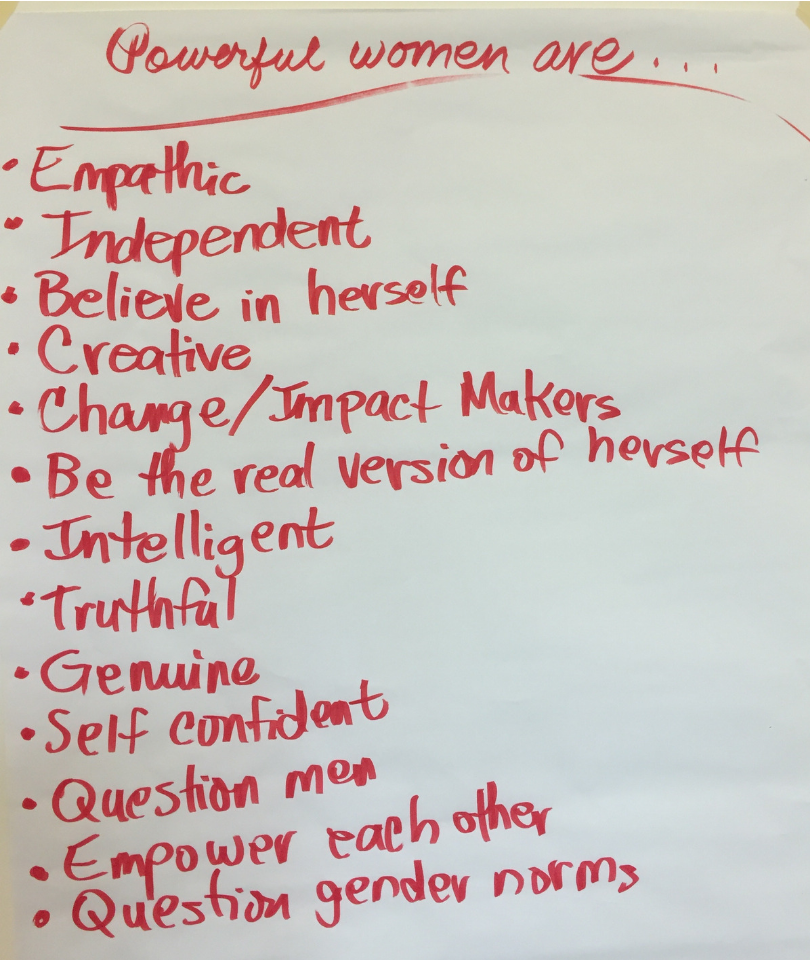 Powerful women are...
• Empathic
• Independent
• Believe in herself
• Creative
• Change/Impact Makers
• Be the real version of herself
• Intelligent
• Truthful
• Genuine
• Self confident
• Question men
• Empower each other
• Question gender norms